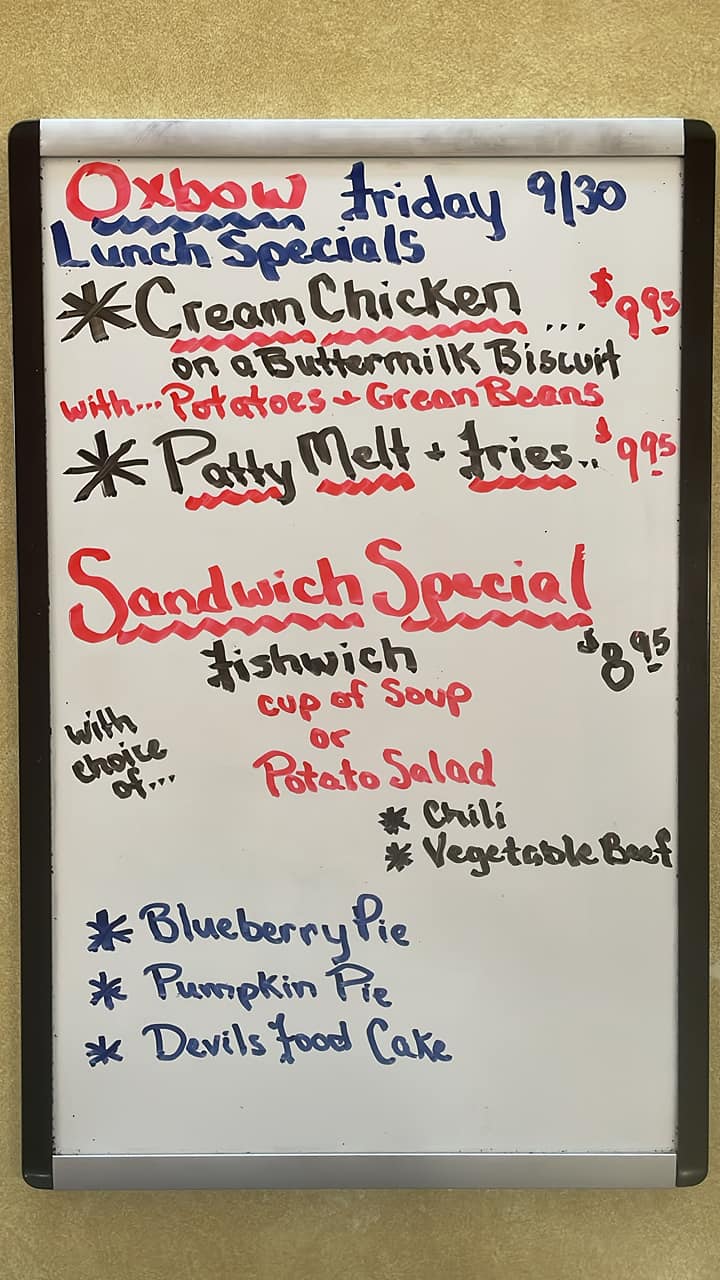 Oxbow Friday 9/30
Lunch Specials
* Cream Chicken ... $9.95
on a Buttermilk Biscuit
with... Potatoes + Grean Beans
* Patty Melt + Fries.. $9.95
Sandwich Special
Fishwich $8.95
cup of Soup
or
Potato Salad
with
choice
of...
* Chili
* Vegetable Beef
* Blueberry Pie
* Pumpkin Pie
* Devils Food Cake